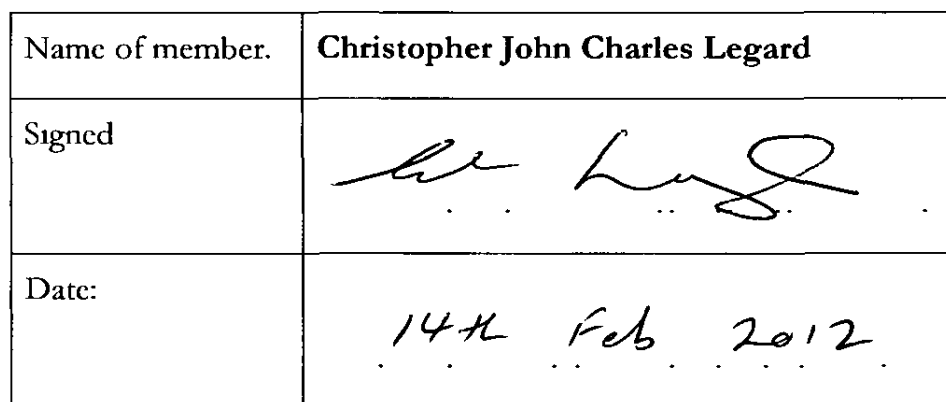 Name of member. Christopher John Charles Legard
Signed
Date: 14th Feb 2012